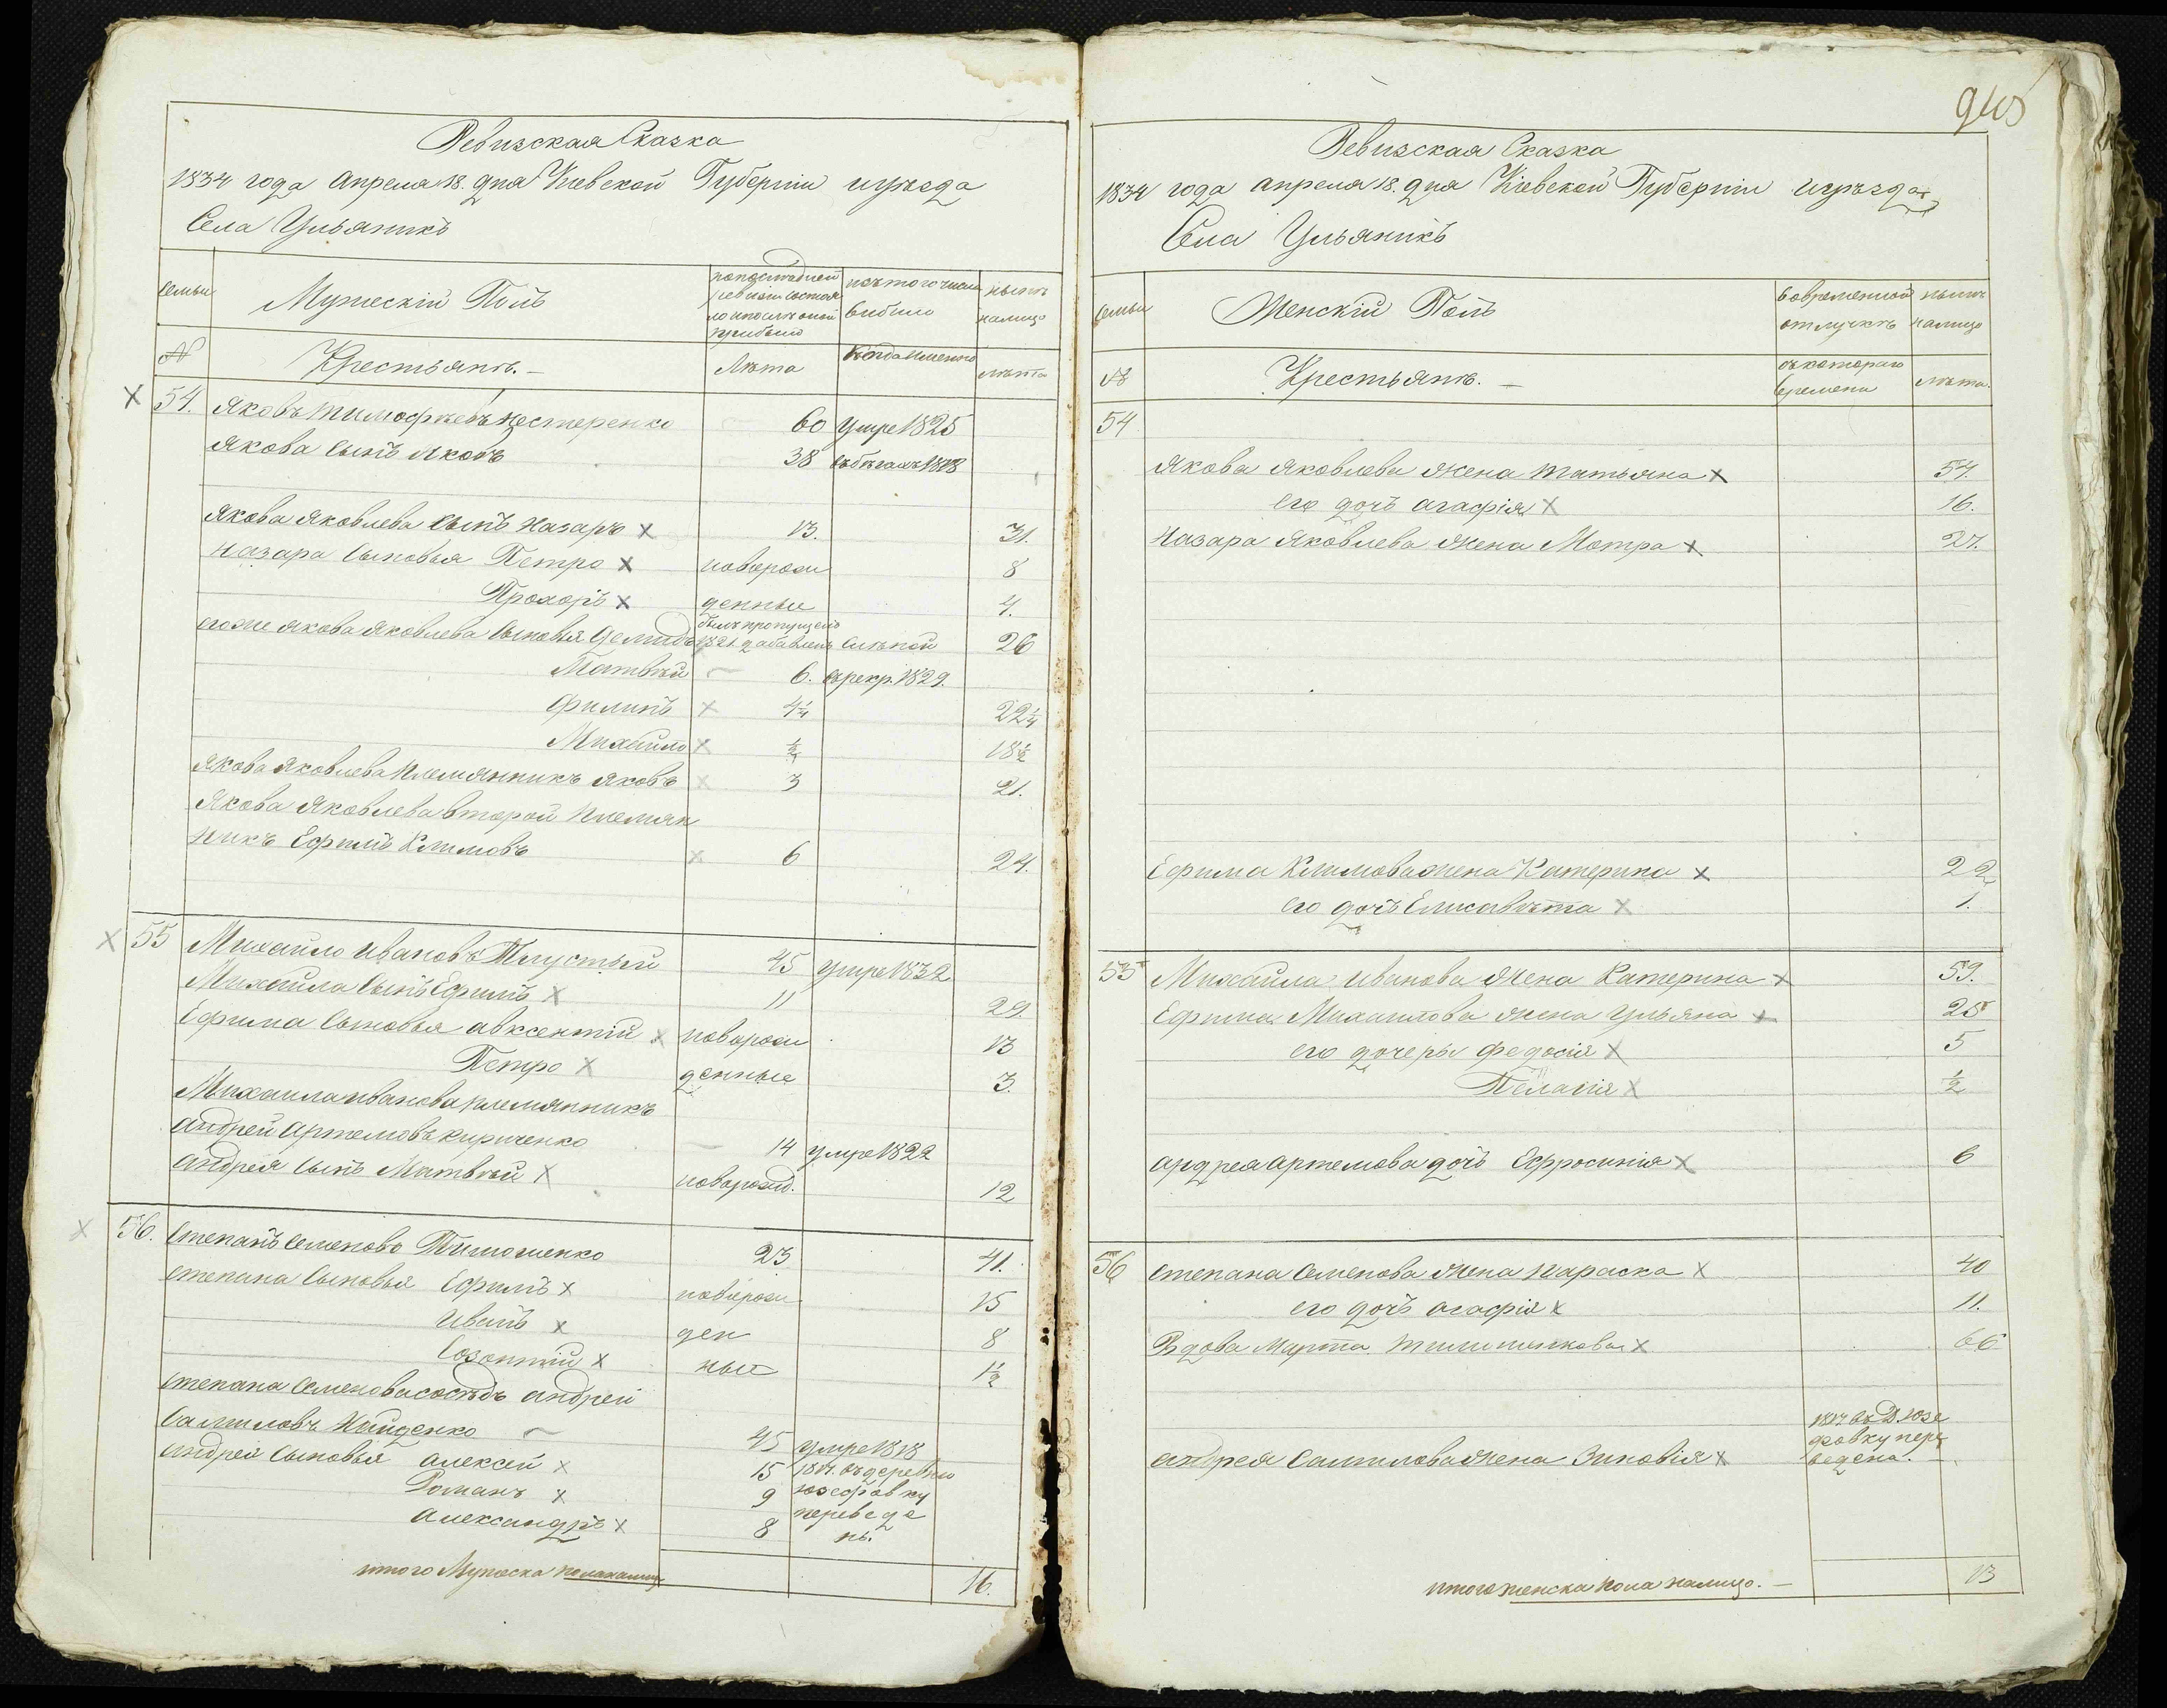 Ревизская Сказка
1834 года апреля 18. дня Кіевской Губерніи и уѣзда
Села Ульяникъ
Семьи
Мужескій Полъ
по последней ревизіи состояло и после оной прибыло
изъ того числа выбыло
нынѣ налицо
№
Крестьянъ. —
Лѣта
Когда именно
лѣта
54. Яковъ Тимофѣевъ Нестеренко 60 умре 1825
Якова сынъ Яковъ 38 въ бѣгахъ 1818
Якова Яковлева сынъ Назаръ х 13. 31.
Назара сыновья Петро х новорож 8
Прохоръ х денные 4.
его же Якова Яковлева сыновья Демидъ былъ пропущенъ 1821 добавленъ слѣпой 26
Матвѣй 6. в рекр. 1829.
Филипъ х 4¼ 22¼
Михайло х ½ 18½
Якова Яковлева племянникъ Яковъ х 3 21.
Якова Яковлева второй племян
никъ Ефимъ Климовъ х 6 24.
х 55 Михайло Ивановъ Тлустый 45 умре 1832
Михайла сынъ Ефимъ х 11 29.
Ефима сыновья Авксентій х новорож 13
Петро х денные 3.
Михаила Иванова племянникъ
Андрей Артемовъ Кириченко 14 умре 1822
Андрея сынъ Матвѣй х новорожд. 12
х 56. Степанъ Семеновъ Тимошенко 23 41.
Степана сыновья Ефимъ х новорож 15
Иванъ х ден 8
Созонтій х ные 1½
Степана Семенова сосѣдъ Андрей
Самиловъ Найденко 45 умре 1818
Андрея сыновья Алексей х 15 1817. въ деревню
Романъ х 9 Юзефовку
Александръ х 8 переведе
ны.
итого Мужеска пола налицо 16.
945
Ревизская Сказка
1834 года апреля 18. дня Кіевской Губерніи и уѣзда
Села Ульяникъ
Семьи
Женскій Полъ
во временной отлучкѣ
нынѣ налицо
№
Крестьянъ. —
съ котораго времени
лѣта.
54
Якова Яковлева жена Татьяна х 54.
его дочь Агафія х 16.
Назара Яковлева жена Мотра х 27.
Ефима Климова жена Катерина х 22
его дочь Елисавѣта х 1.
55 Михайла Иванова жена Катерина х 59.
Ефима Михаилова жена Ульяна х 25
его дочеры Федосія х 5
Пелагія х ½
Андрея Артемова дочь Ефросинія х 6
56 Степана Семенова жена Параска х 40
его дочь Агафія х 11.
Вдова Марта Тимошенкова х 66
Андрея Самилова жена Зиновія х 1817 въ Д. Юзе
фовку пере
ведена. —
итого женска пола налицо. — 13